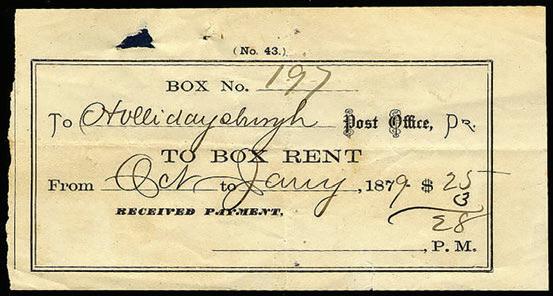 (No. 43.)
BOX No. 197
To Hollidaysburgh Post Office, Dr.
TO BOX RENT
From Oct to Jany, 1879 $ 25
3
28
RECEIVED PAYMENT,
, P. M.